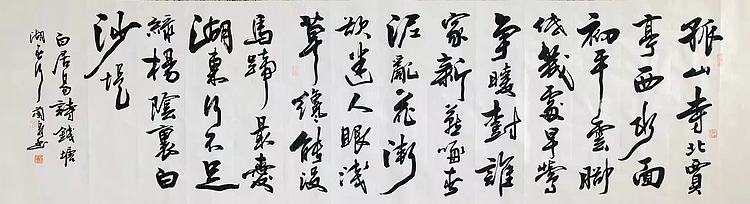 孤山寺北賈
亭西水面
初平雲腳
低幾處早鶯
爭暖樹誰
家新燕啄春
泥亂花漸
欲迷人眼淺
草纔能沒
馬蹄最愛
湖東行不足
綠楊陰裏白
沙堤
白居易詩錢塘
湖春行